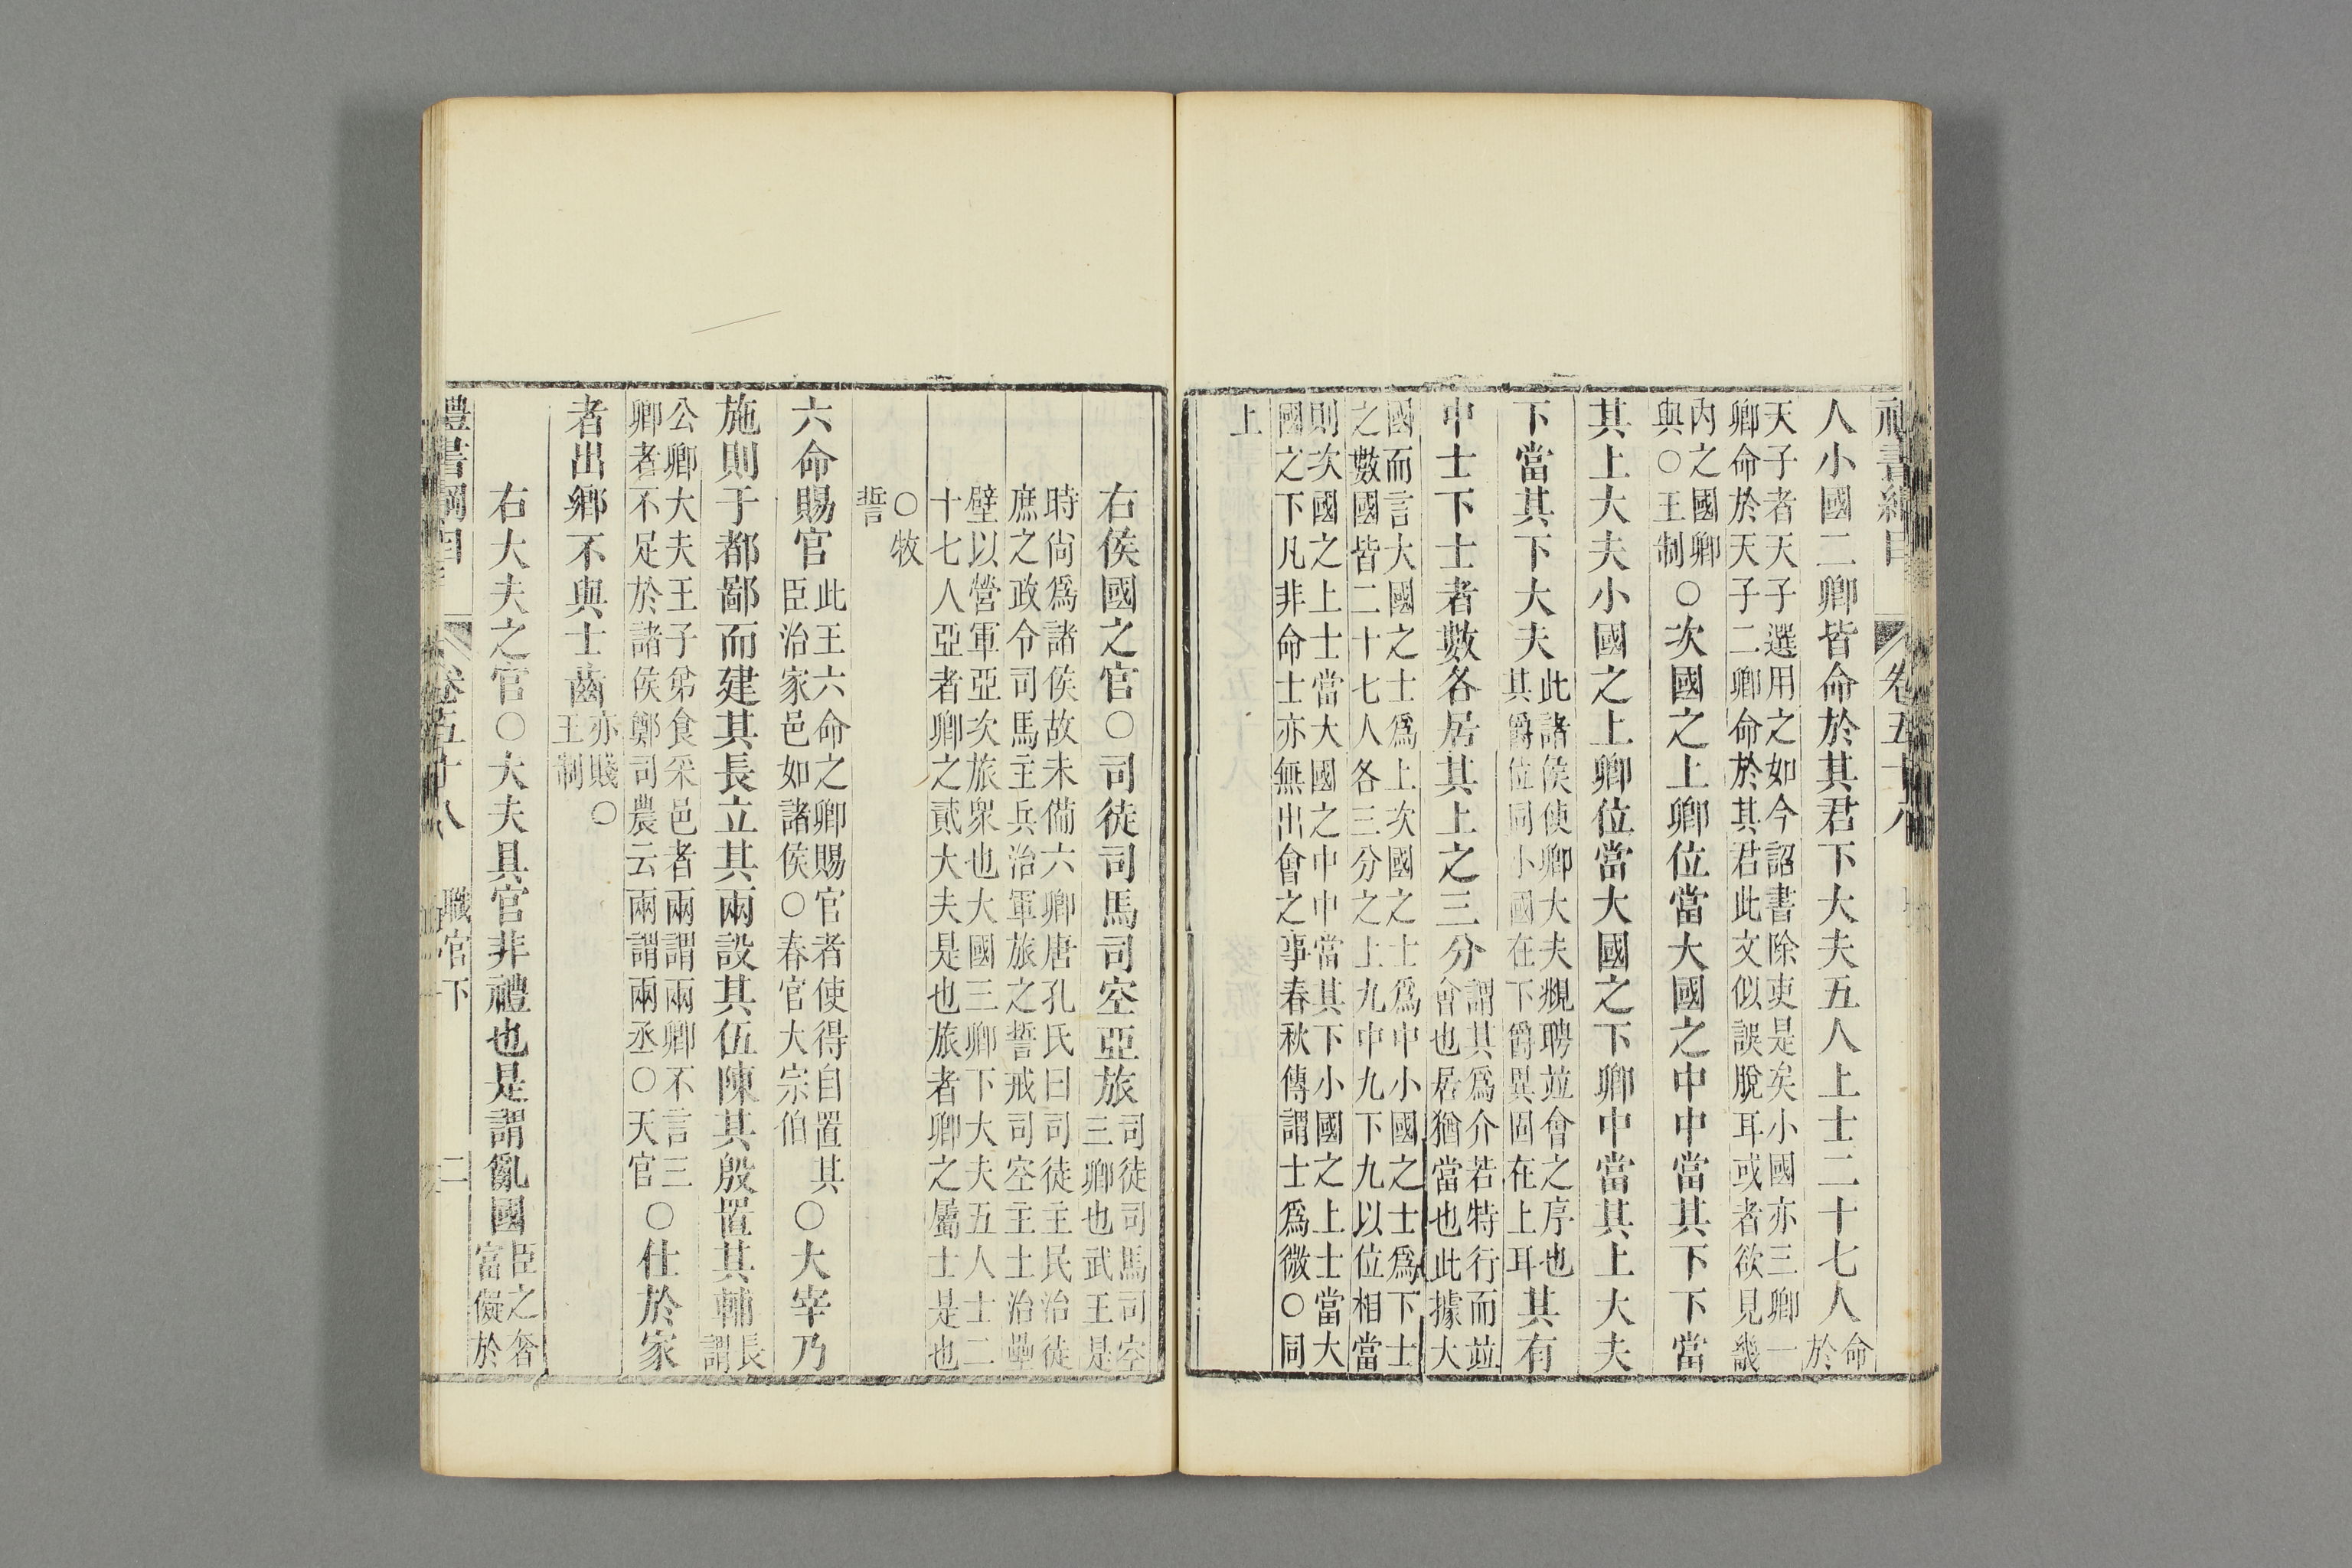 禮書綱目 卷五十八
人小國二卿皆命於其君下大夫五人上士二十七人命於
天子者天子選用之如今詔書除吏是矣小國亦三卿一
卿命於天子二卿命於其君此文似誤脫耳或者欲見畿
內之國卿
與○王制
○次國之上卿位當大國之中中當其下下當
其上大夫小國之上卿位當大國之下卿中當其上大夫
下當其下大夫
此諸侯使卿大夫覜聘並會之序也
其爵位同小國在下爵異固在上耳
其有
中士下士者數各居其上之三分
謂其爲介若特行而並
會也居猶當也此據大
國而言大國之士爲上次國之士爲中小國之士爲下士
之數國皆二十七人各三分之上九中九下九以位相當
則次國之上士當大國之中中當其下小國之上士當大
國之下凡非命士亦無出會之事春秋傳謂士爲微○同
上
右侯國之官○司徒司馬司空亞旅
司徒司馬司空
三卿也武王是
時尙爲諸侯故未備六卿唐孔氏曰司徒主民治徒
庶之政令司馬主兵治軍旅之誓戒司空主土治壘
壁以營軍亞次旅衆也大國三卿下大夫五人士二
十七人亞者卿之貳大夫是也旅者卿之屬士是也
○牧
誓
六命賜官
此王六命之卿賜官者使得自置其
臣治家邑如諸侯○春官大宗伯
○大宰乃
施則于都鄙而建其長立其兩設其伍陳其殷置其輔
長
謂
公卿大夫王子弟食采邑者兩謂兩卿不言三
卿者不足於諸侯鄭司農云兩謂兩丞○天官
○仕於家
者出鄉不與士齒
亦賤○
王制
右大夫之官○大夫具官非禮也是謂亂國
臣之奢
富儗於
禮書綱目 卷五十八 職官下 二